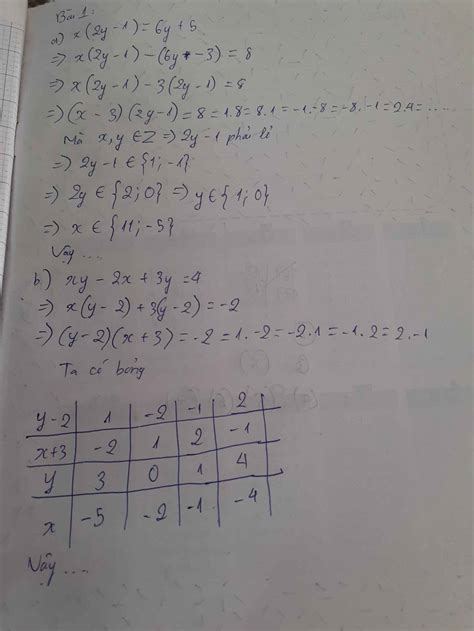 Bài 1:
a) x(2y-1) = 6y + 5
=> x(2y-1) - (6y - 3) = 8
=> x(2y-1) - 3(2y-1) = 8
=> (x - 3)(2y-1) = 8 = 1.8 = 8.1 = -1.-8 = -8.-1 = 2.4 = ....
Mà x, y ∈ Z => 2y - 1 phải lẻ
=> 2y-1 ∈ {1; -1}
=> 2y ∈ {2; 0} => y ∈ {1; 0}
=> x ∈ {11; -5}
Vậy ...
b.) xy - 2x + 3y = 4
=> x(y-2) + 3(y-2) = -2
=> (y-2)(x+3) = -2 = 1.-2 = -2.1 = -1.2 = 2.-1
Ta có bảng
y-2 | 1 | -2 | -1 | 2
x+3 | -2 | 1 | 2 | -1
y | 3 | 0 | 1 | 4
x | -5 | -2 | -1 | -4
Vậy ....